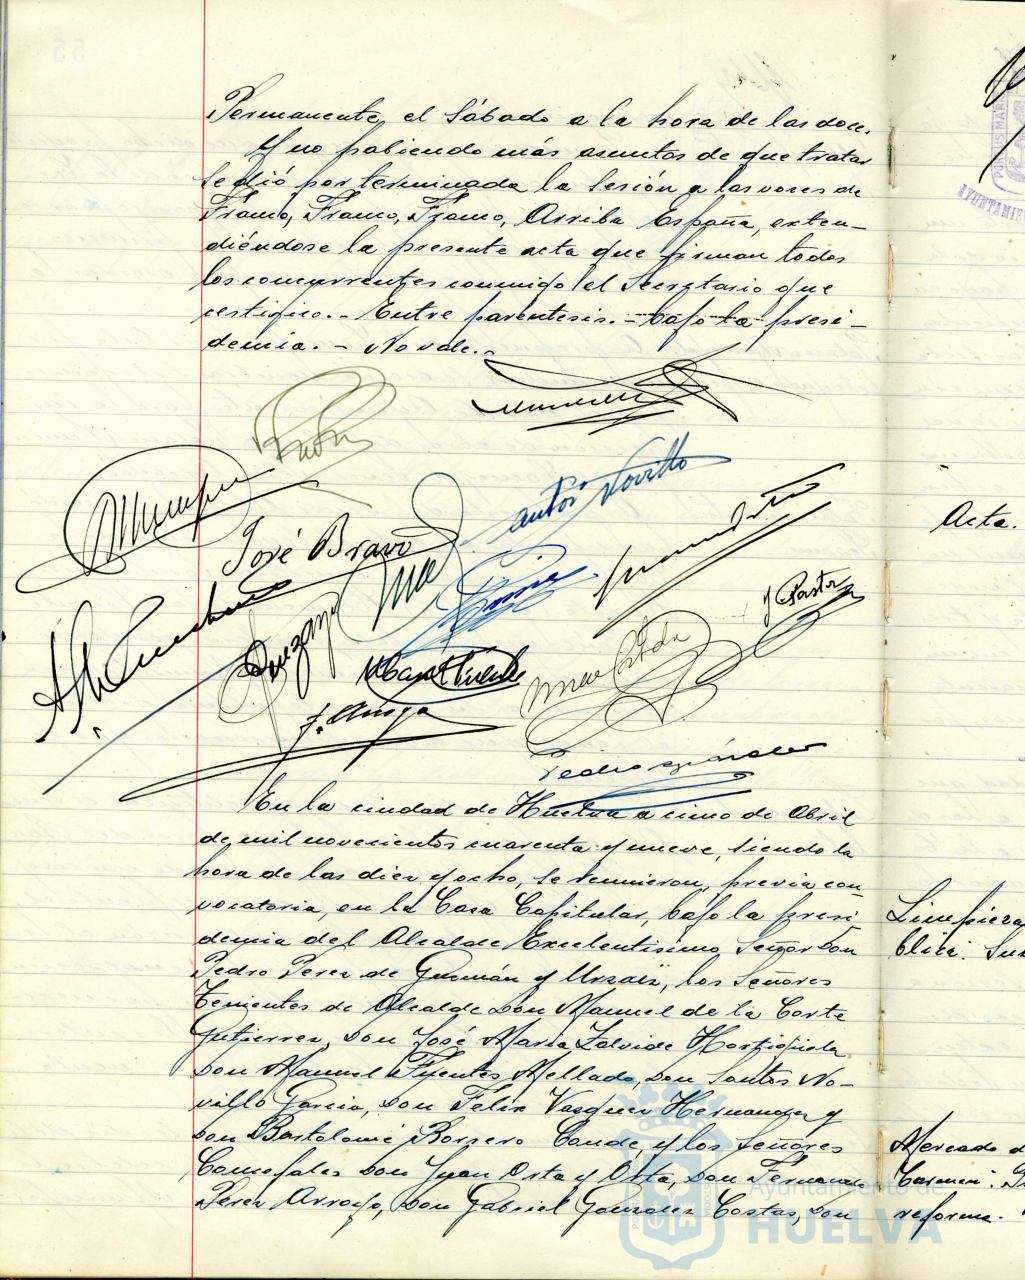 Permanente, el Sábado a la hora de las doce.
Y no habiendo más asuntos de que tratar
se dió por terminada la Sesión a las voces de
Franco, Franco, Franco, Arriba España, exten-
diéndose la presente acta que firman todos
los concurrentes conmigo el Secretario que
certifico. - Entre paréntesis. - bajo la presi-
dencia. - No vale. -
Santos Novillo
José Bravo
J Pastor
Pedro González
Acta.
En la ciudad de Huelva a cinco de Abril
de mil novecientos cuarenta y nueve, siendo la
hora de las diez y ocho, se reunieron, previa con-
vocatoria, en la Casa Capitular, bajo la presi
dencia del Alcalde Excelentísimo Señor Don
Pedro Perez de Guzmán y Urzaiz, los Señores
Tenientes de Alcalde Don Manuel de la Corte
Gutierrez, Don José María Zalvide Hortigüela
Don Manuel Fuentes Mellado, Don Santos No-
villo Garcia, Don Felix Vazquez Hernandez y
Don Bartolomé Borrero Conde, y los Señores
Concejales Don Juan Orta y Orta, Don Fernando
Perez Arroyo, Don Gabriel Gonzalez Costas, Don
Limpieza
blica:
Mercado d
Carmen:
reforma.
Ayuntamiento de
HUELVA